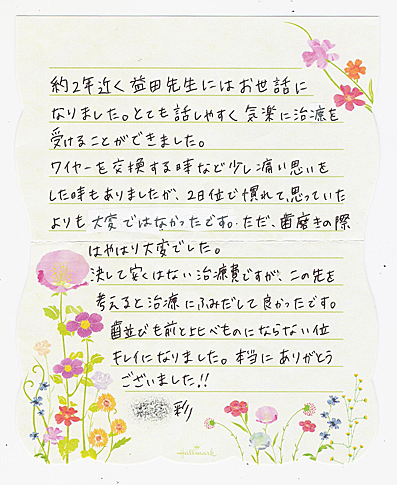 約2年近く益田先生にはお世話に
なりました。とても話しやすく気楽に治療を
受けることができました。
ワイヤーを交換する時など少し痛い思いを
した時もありましたが、2日位で慣れて思っていた
よりも大変ではなかったです。ただ、歯磨きの際
はやはり大変でした。
決して安くはない治療費ですが、この先を
考えると治療にふみだして良かったです。
歯並びも前と比べものにならない位
キレイになりました。本当にありがとう
ございました!!
彩
Hallmark